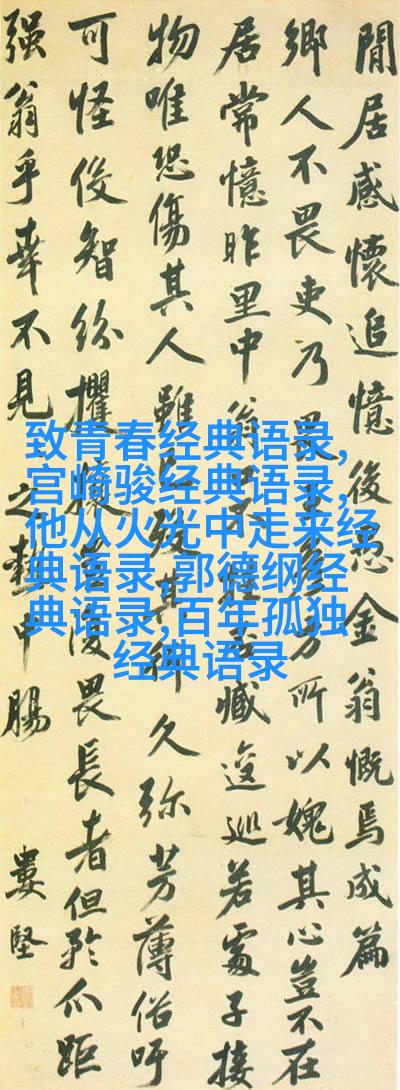 閒居感懷追憶後愚金翁慨焉成篇
鄉人不畏吏乃畏方所以媿其心豈不在
居常憶昨里中翁不臧逡巡若處子接
物唯恐傷其人雖其久弥芳薄俗吁
可怪俊智紛攫畏長者但矜爪距
强翁乎幸不見之中腸
婁堅
致青春经典语录,
宫崎骏经典语录,
他从火光中走来经
典语录,郭德纲经
典语录,百年孤独
经典语录